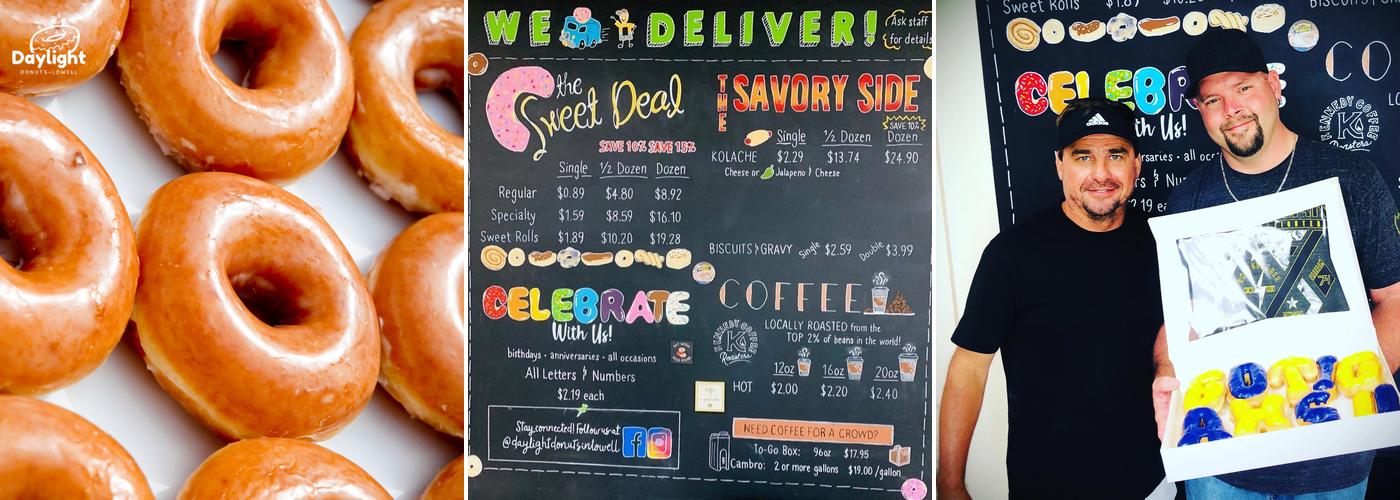 Daylight
DONUTS • LOWELL
WE DELIVER!
Ask staff
for details
the
Sweet Deal
SAVE 10% SAVE 15%
Single ½ Dozen Dozen
Regular $0.89 $4.80 $8.92
Specialty $1.59 $8.59 $16.10
Sweet Rolls $1.89 $10.20 $19.28
CELEBRATE
With Us!
birthdays • anniversaries • all occasions
All Letters & Numbers
$2.19 each
Stay connected! Follow us at
@daylightdonutsinlowell
THE SAVORY SIDE
SAVE 10%
Single ½ Dozen Dozen
KOLACHE $2.29 $13.74 $24.90
Cheese or Jalapeno & Cheese
BISCUITS & GRAVY Single $2.59 Double $3.99
COFFEE
KENNEDY COFFEE
K
Roasters
LOCALLY ROASTED from the
TOP 2% of beans in the world!
12oz 16oz 20oz
HOT $2.00 $2.20 $2.40
NEED COFFEE FOR A CROWD?
To-Go Box: 96oz $17.95
Cambro: 2 or more gallons $19.00/gallon
Sweet Rolls $1.89
CELEB
With Us!
CO
KENNEDY COFFEE
K
Roasters
adidas